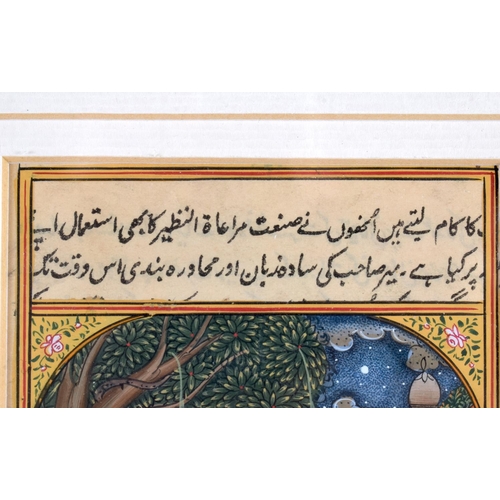 کا کام لیتے ہیں اُنھوں نے صنعت مراعاۃ النظیر کا بھی استعمال
پر کیا ہے ۔ میر صاحب کی سادہ زبان اور محاورہ بندی اس وقت تک